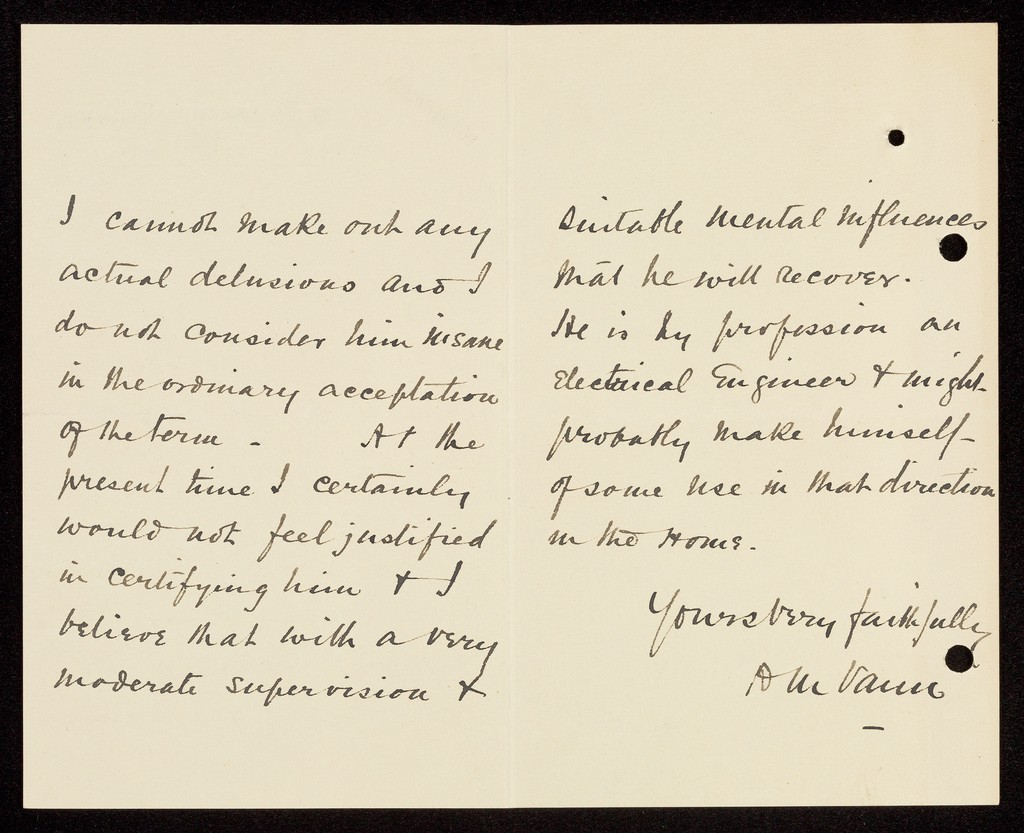 I cannot make out any
actual delusions and I
do not consider him insane
in the ordinary acceptation
of the term - At the
present time I certainly
would not feel justified
in certifying him & I
believe that with a very
moderate supervision &
suitable mental influences
that he will recover.
He is by profession an
Electrical Engineer & might
probably make himself
of some use in that direction
in the Home.
Yours very faithfully
A M Vann